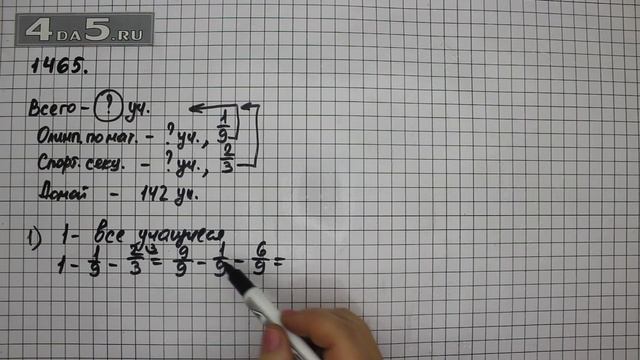 4DA5.RU
1465.
Всего - ? уч.
Олимп. по мат. - ? уч., 1/9
Спорт. секц. - ? уч., 2/3
Домой - 142 уч.
1) 1 - все учащиеся
1 - 1/9 - 2/3 ^3 = 9/9 - 1/9 - 6/9 =